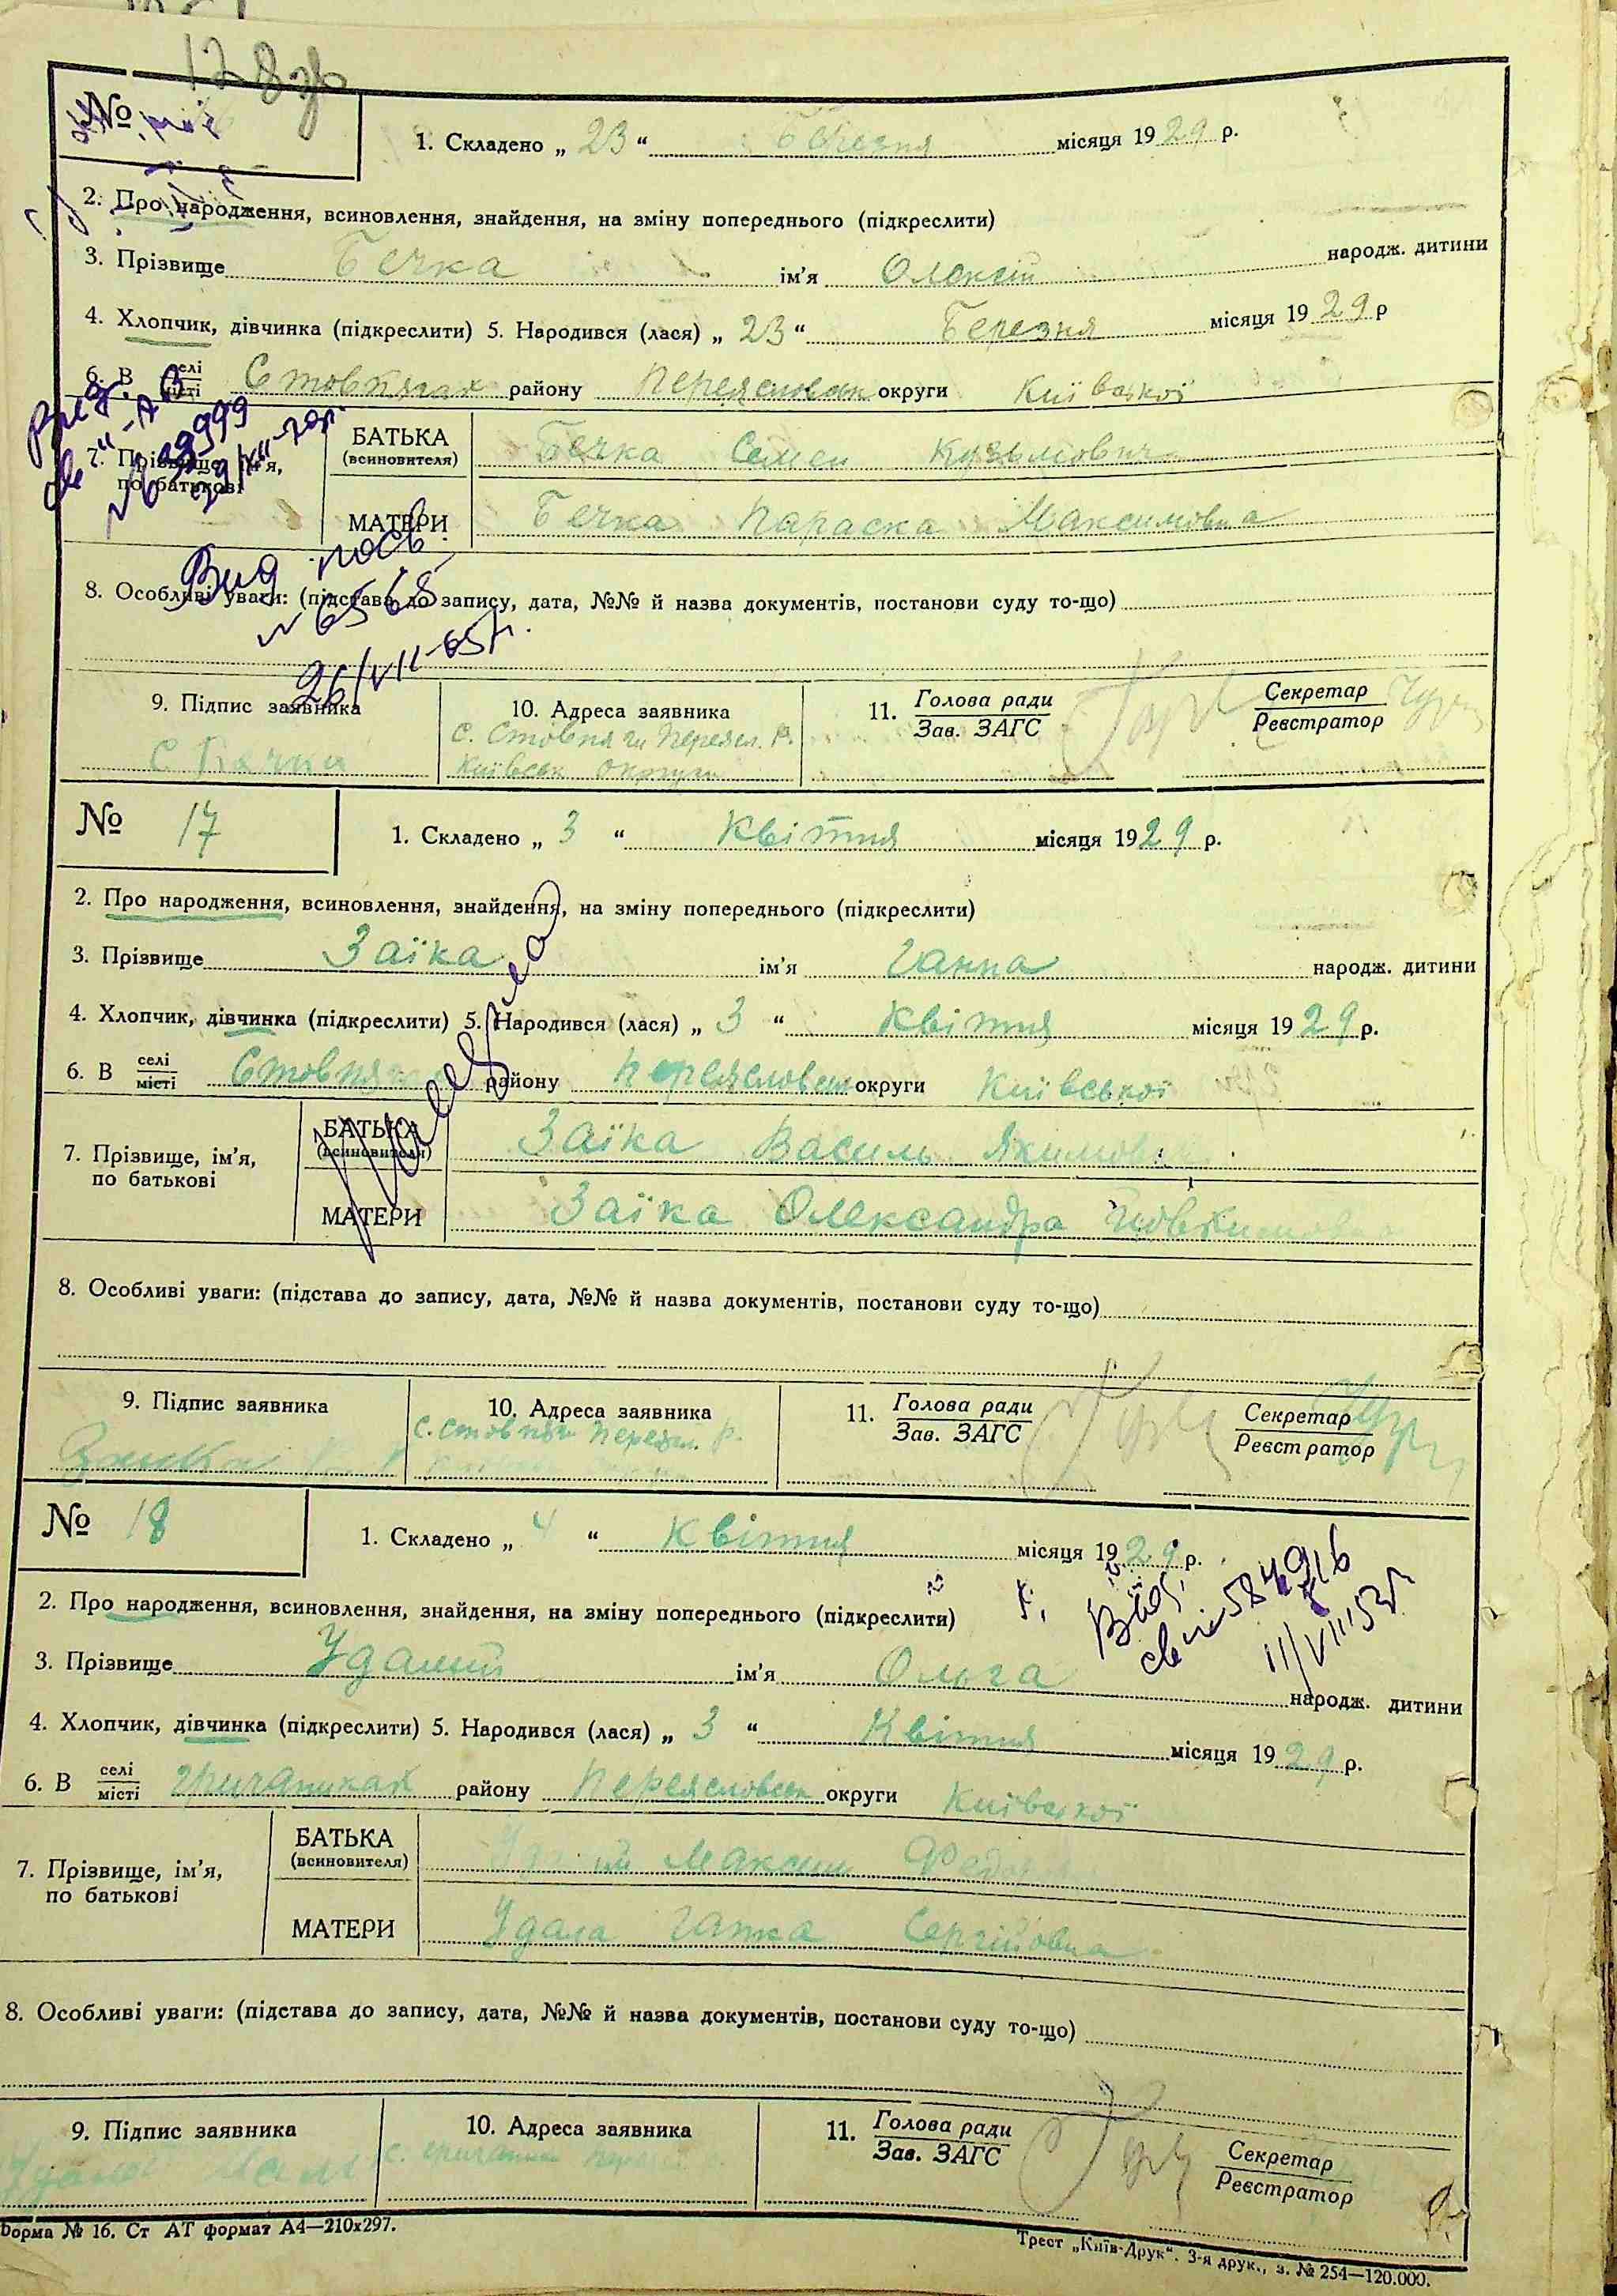 128зв
№
1. Складено „ 23 “ Березня місяця 1929 р.
2. Про народження, всиновлення, знайдення, на зміну попереднього (підкреслити)
3. Прізвище Бечка ім’я Олексій народж. дитини
4. Хлопчик, дівчинка (підкреслити) 5. Народився (лася) „ 23 “ Березня місяця 1929 р
6. В селі місті Стовпягах району Переясловськ округи Київської
7. Прізвище, ім’я, по батькові
БАТЬКА (всиновителя) Бечка Семен Кузьмович
МАТЕРИ Бечка Параска Максимовна
8. Особливі уваги: (підстава до запису, дата, №№ й назва документів, постанови суду то-що)
26/VII-65г.
9. Підпис заявника
10. Адреса заявника
с. Стовпяги Переясл. р.
Київськ округи
11. Голова ради Зав. ЗАГС
Секретар Реєстратор
№ 17
1. Складено „ 3 “ Квітня місяця 1929 р.
2. Про народження, всиновлення, знайдення, на зміну попереднього (підкреслити)
3. Прізвище Заїка ім’я Ганна народж. дитини
4. Хлопчик, дівчинка (підкреслити) 5. Народився (лася) „ 3 “ Квітня місяця 1929 р.
6. В селі місті Стовпягах району Переясловськ округи Київської
7. Прізвище, ім’я, по батькові
БАТЬКА (всиновителя) Заїка Василь Якимович
МАТЕРИ Заїка Олександра
8. Особливі уваги: (підстава до запису, дата, №№ й назва документів, постанови суду то-що)
9. Підпис заявника
10. Адреса заявника
с. Стовпяги Переясл. р.
11. Голова ради Зав. ЗАГС
Секретар Реєстратор
№ 18
1. Складено „ 4 “ Квітня місяця 1929 р.
2. Про народження, всиновлення, знайдення, на зміну попереднього (підкреслити)
3. Прізвище Удалий ім’я Ольга народж. дитини
4. Хлопчик, дівчинка (підкреслити) 5. Народився (лася) „ 3 “ Квітня місяця 1929 р.
6. В селі місті Гречаниках району Переясловськ округи Київської
7. Прізвище, ім’я, по батькові
БАТЬКА (всиновителя) Удалий Максим
МАТЕРИ Удала Гапка Сергійовна
8. Особливі уваги: (підстава до запису, дата, №№ й назва документів, постанови суду то-що)
9. Підпис заявника
10. Адреса заявника
11. Голова ради Зав. ЗАГС
Секретар Реєстратор
Форма № 16. Ст АТ формат А4—210х297.
Трест „Київ-Друк“. 3-я друк., з. № 254—120.000.